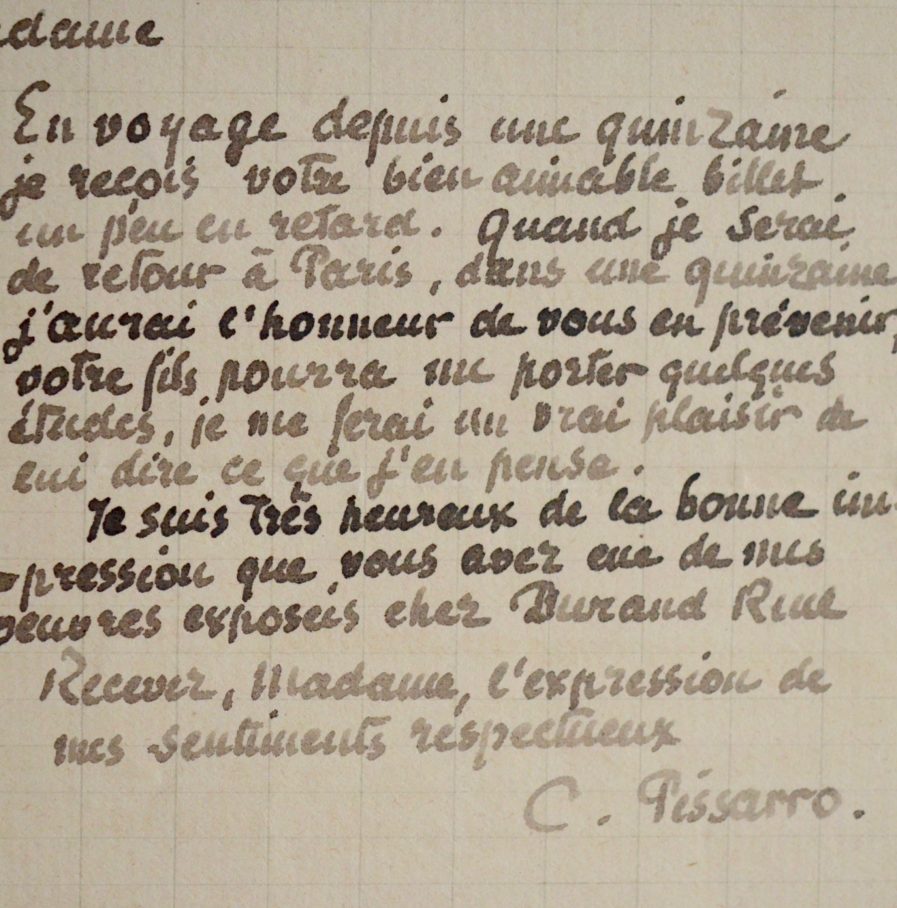 Madame
En voyage depuis une quinzaine
je reçois votre bien aimable billet
un peu en retard. Quand je serai
de retour à Paris, dans une quinzaine
j'aurai l'honneur de vous en prévenir,
votre fils pourra me porter quelques
études, je me ferai un vrai plaisir de
lui dire ce que j'en pense.
Je suis très heureux de la bonne im-
-pression que vous avez eue de mes
oeuvres exposeis chez Durand Ruel
Recevez, Madame, l'expression de
mes sentiments respectueux
C. Pissarro.